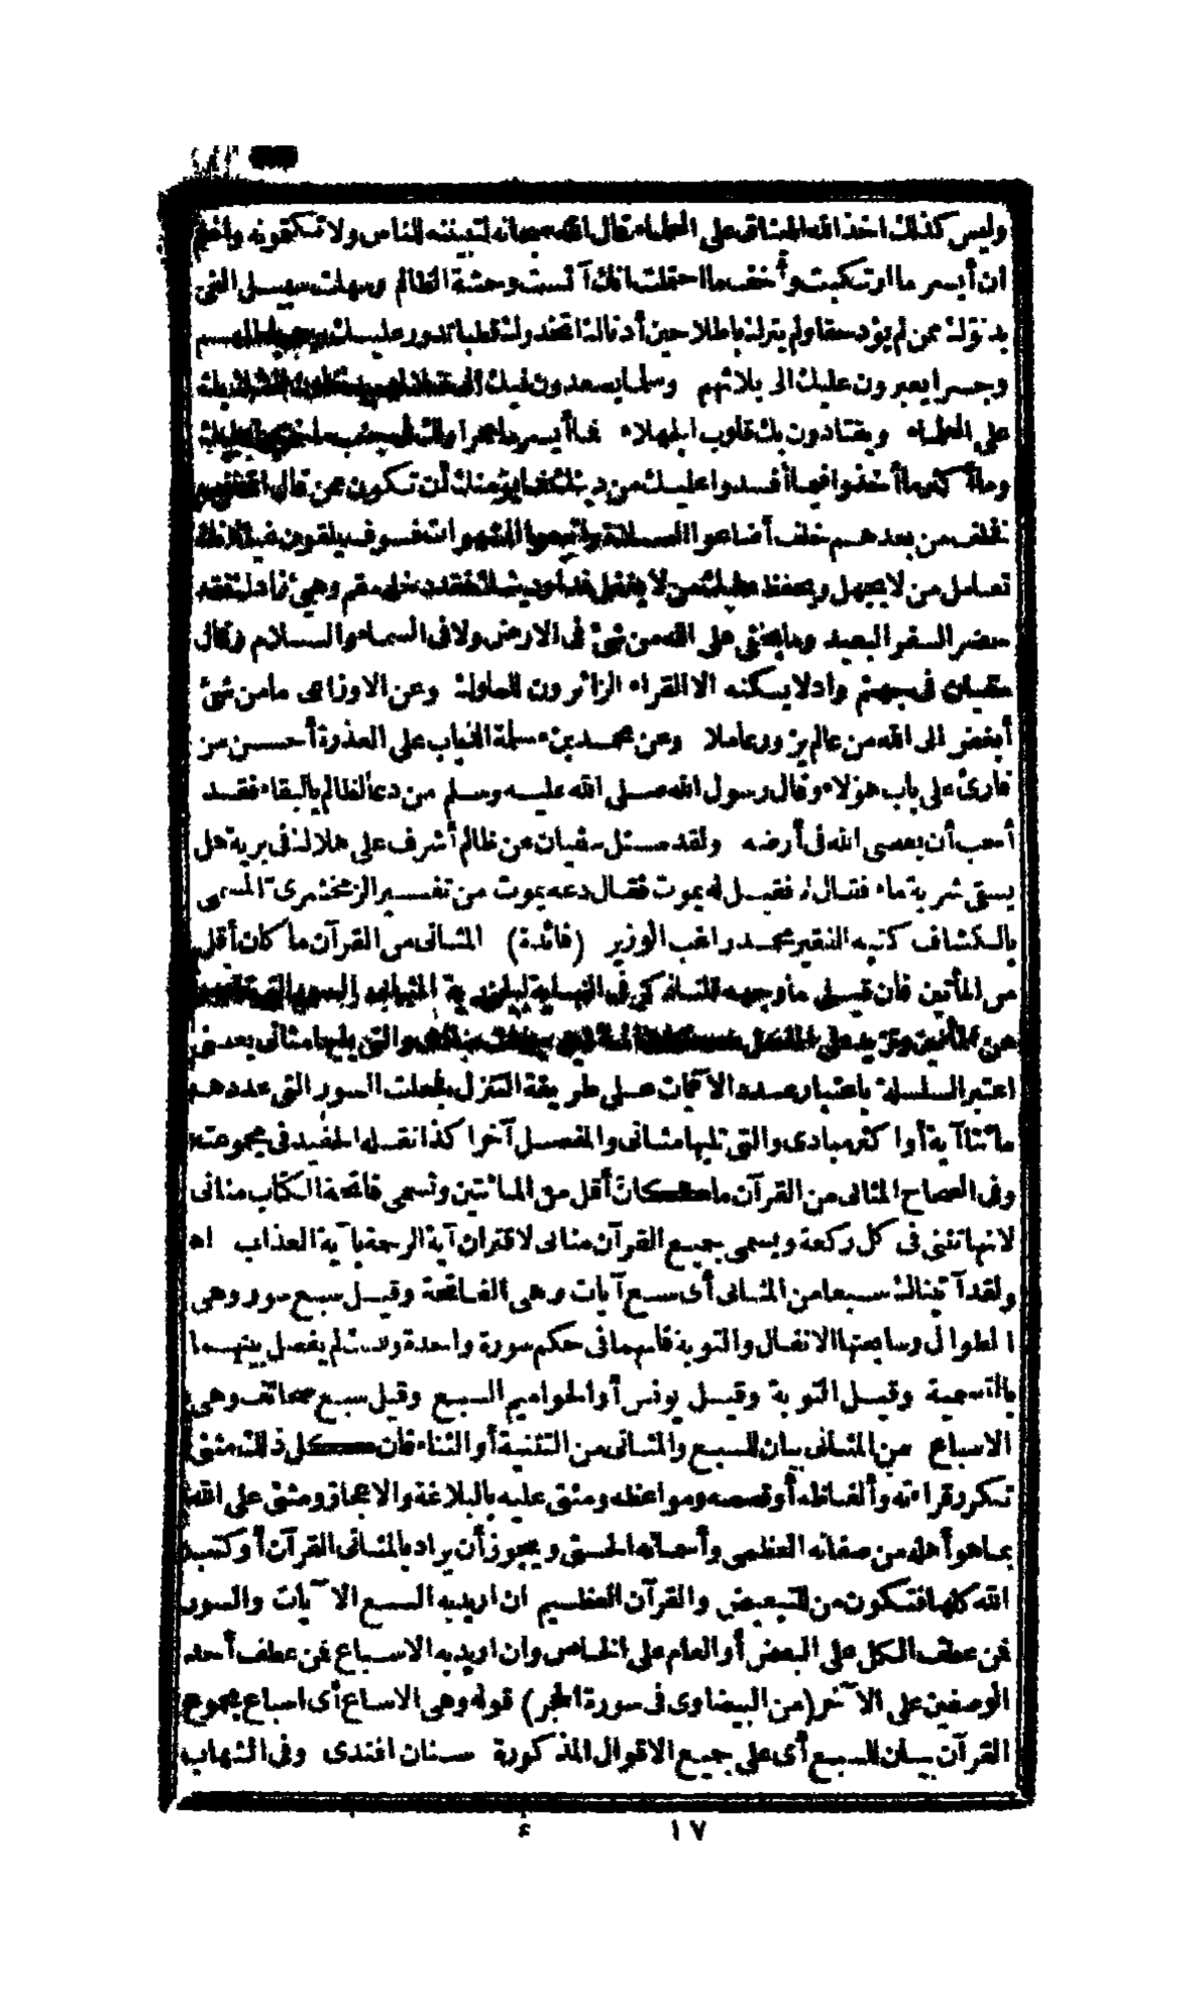 وليس كذلك أخذ الله الميثاق على العلماء قال الله سبحانه لتبيننه للناس ولا تكتمونه واعلم
ان أيسر ما ارتكبت وأخف ما احتملت انك آنست وحشة الظالم وسهلت سبيل الغي
بدنوك ممن لم يؤد حقا ولم يترك باطلا حين أدناك اتخذوك قطبا تدور عليك
وجسرا يعبرون عليك الى بلائهم وسلما يصعدون فيك الى
على العلماء ويقتادون بك قلوب الجهلاء فما أيسر ما عمروا لك فى جنب ما خربوا عليك
وما أكثر ما أخذوا فيما أفسدوا عليك من دينك فما يؤمنك أن تكون ممن قال الله فيهم
فخلف من بعدهم خلف أضاعوا الصلاة واتبعوا الشهوات فسوف يلقون غيا فانك
تعامل من لا يجهل ويحفظ عليك من لا يغفل فداو دينك فقد دخله سقم وهيئ زادك فقد
حضر السفر البعيد وما يخفى على الله من شئ فى الارض ولا فى السماء والسلام وقال
سفيان فى جهنم واد لا يسكنه الا القراء الزائرون للملوك وعن الاوزاعى ما من شئ
أبغض الى الله من عالم يزور عاملا وعن محمد بن مسلمة الذباب على العذرة أحسن من
قارئ على باب هؤلاء وقال رسول الله صلى الله عليه وسلم من دعا لظالم بالبقاء فقد
أحب أن يعصى الله فى أرضه ولقد سئل سفيان عن ظالم أشرف على هلاك فى برية هل
يسقى شربة ماء فقال لا فقيل له يموت فقال دعه يموت من تفسير الزمخشرى المسمى
بالكشاف كتبه الفقير محمد راغب الوزير (فائدة) المثانى من القرآن ما كان أقل
من المأتين فان قيل ما وجهه قلنا ذكر فى النهاية
عن المأتين وتزيد على المفصل والتى يليها مثانى بعد فى
اعتبر السلسلة باعتبار عدد الآيات على طريقة التنزل فجعلت السور التى عددهم
مائتا آية أو أكثر مبادى والتى تليها مثانى والمفصل آخرا كذا نقله الحفيد فى مجموعته
وفى الصحاح المثانى من القرآن ما كان أقل من المائتين وتسمى فاتحة الكتاب مثانى
لانها تثنى فى كل ركعة ويسمى جميع القرآن مثانى لاقتران آية الرحمة بآية العذاب اه
ولقد آتيناك سبعا من المثانى أى سبع آيات وهى الفاتحة وقيل سبع سور وهى
الطوال وسابعتها الانفال والتوبة فانهما فى حكم سورة واحدة ولذلك لم يفصل بينهما
بالتسمية وقيل التوبة وقيل يونس أو الحواميم السبع وقيل سبع صحائف وهى
الاسباع من المثانى بيان للسبع والمثانى من التثنية أو الثناء فان كل ذلك مثنى
تكرر قراءته وألفاظه أو قصصه ومواعظه ومثنى عليه بالبلاغة والاعجاز ومثن على الله
بما هو أهله من صفاته العظمى وأسمائه الحسنى ويجوز أن يراد بالمثانى القرآن أو كتب
الله كلها فتكون من للتبعيض والقرآن العظيم ان اريد به السبع الآيات والسور
فمن عطف الكل على البعض أو العام على الخاص وان اريد به الاسباع فمن عطف أحد
الوصفين على الآخر (من البيضاوى فى سورة الحجر) قوله وهى الاسباع أى اسباع مجموع
القرآن بيان للسبع أى على جميع الاقوال المذكورة سنان افندى وفى الشهاب
١٧ ء